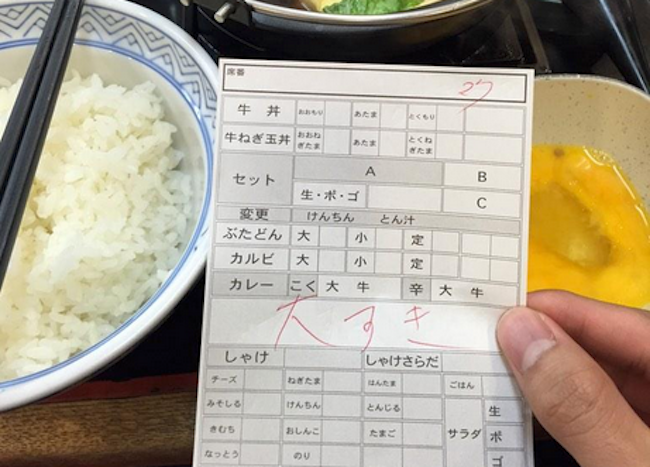 席番 27
牛丼 おおもり あたま とくもり
牛ねぎ玉丼 おおねぎたま あたま とくねぎたま
セット A B
生・ポ・ゴ C
変更 けんちん とん汁
ぶたどん 大 小 定
カルビ 大 小 定
カレー こく 大 牛 辛 大 牛
大すき
しゃけ しゃけさらだ
チーズ ねぎたま はんたま ごはん
みそしる けんちん とんじる サラダ 生
きむち おしんこ たまご ポ
なっとう のり ゴ